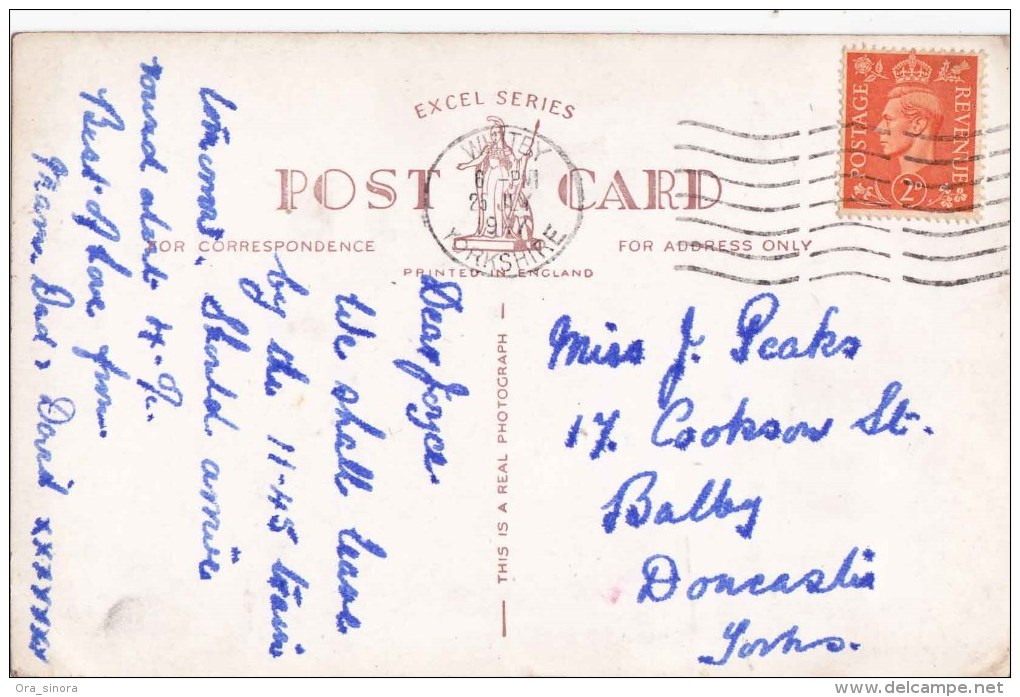 EXCEL SERIES
POST CARD
FOR CORRESPONDENCE
FOR ADDRESS ONLY
PRINTED IN ENGLAND
THIS IS A REAL PHOTOGRAPH
WHITBY
YORKSHIRE
POSTAGE
REVENUE
2D
Dear Joyce
We shall leave
by the 11-45 train
tomorrow. Should arrive
round about 4.
Best of love from
Mam Dad & David xxxxxxx
Miss J. Peaks
17 Cookson St.
Balby
Doncaster
Yorks.
Ora_sinora
www.delcampe.net